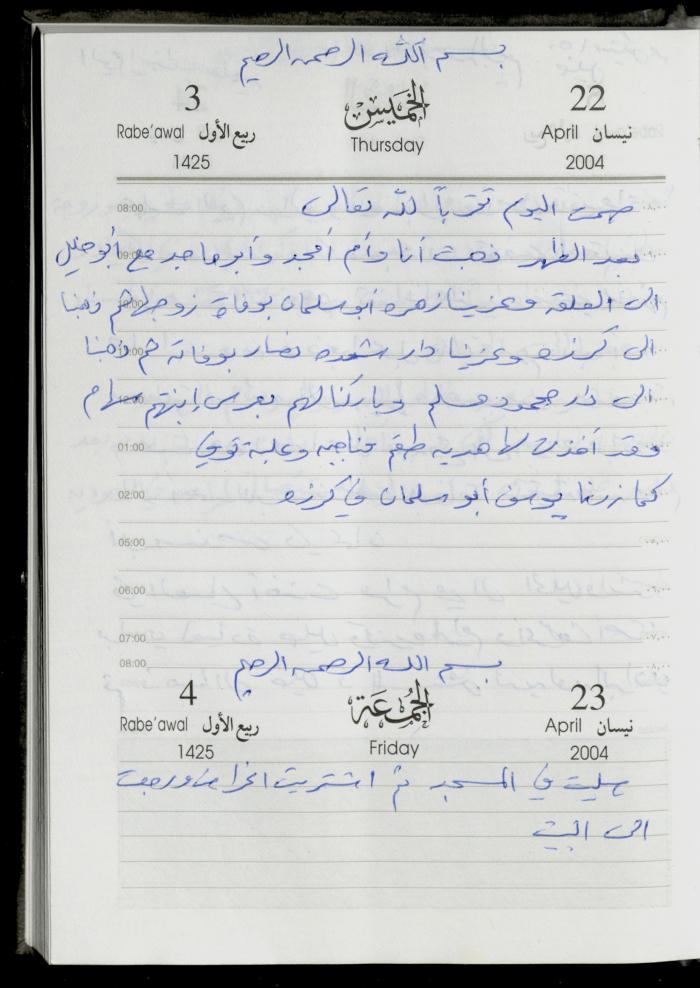 بسم الله الرحمن الرحيم
3 الخميس 22
Rabe'awal ربيع الأول Thursday April نيسان
1425 2004
08:00 صمت اليوم تقرباً لله تعالى
09:00 بعد الظهر ذهبت أنا وأم أمجد وأبو ماجد مع أبو خليل
الى العلقه وعزينا زهره أبو سلمان بوفاة زوجها ثم ذهبنا
الى كرزه وعزينا دار شحده نصار بوفاته ثم ذهبنا
الى دار محمود مسلم وباركنا لهم بعرس إبنتهم سهام
01:00 وقد أخذت لها هدية طقم فناجين وعلبة توفي
02:00 كما زرنا يوسف أبو سلمان في كرزه
05:00
06:00
07:00
08:00 بسم الله الرحمن الرحيم
4 الجمعة 23
Rabe'awal ربيع الأول Friday April نيسان
1425 2004
صليت في المسجد ثم اشتريت اغراض ورجعت
الى البيت